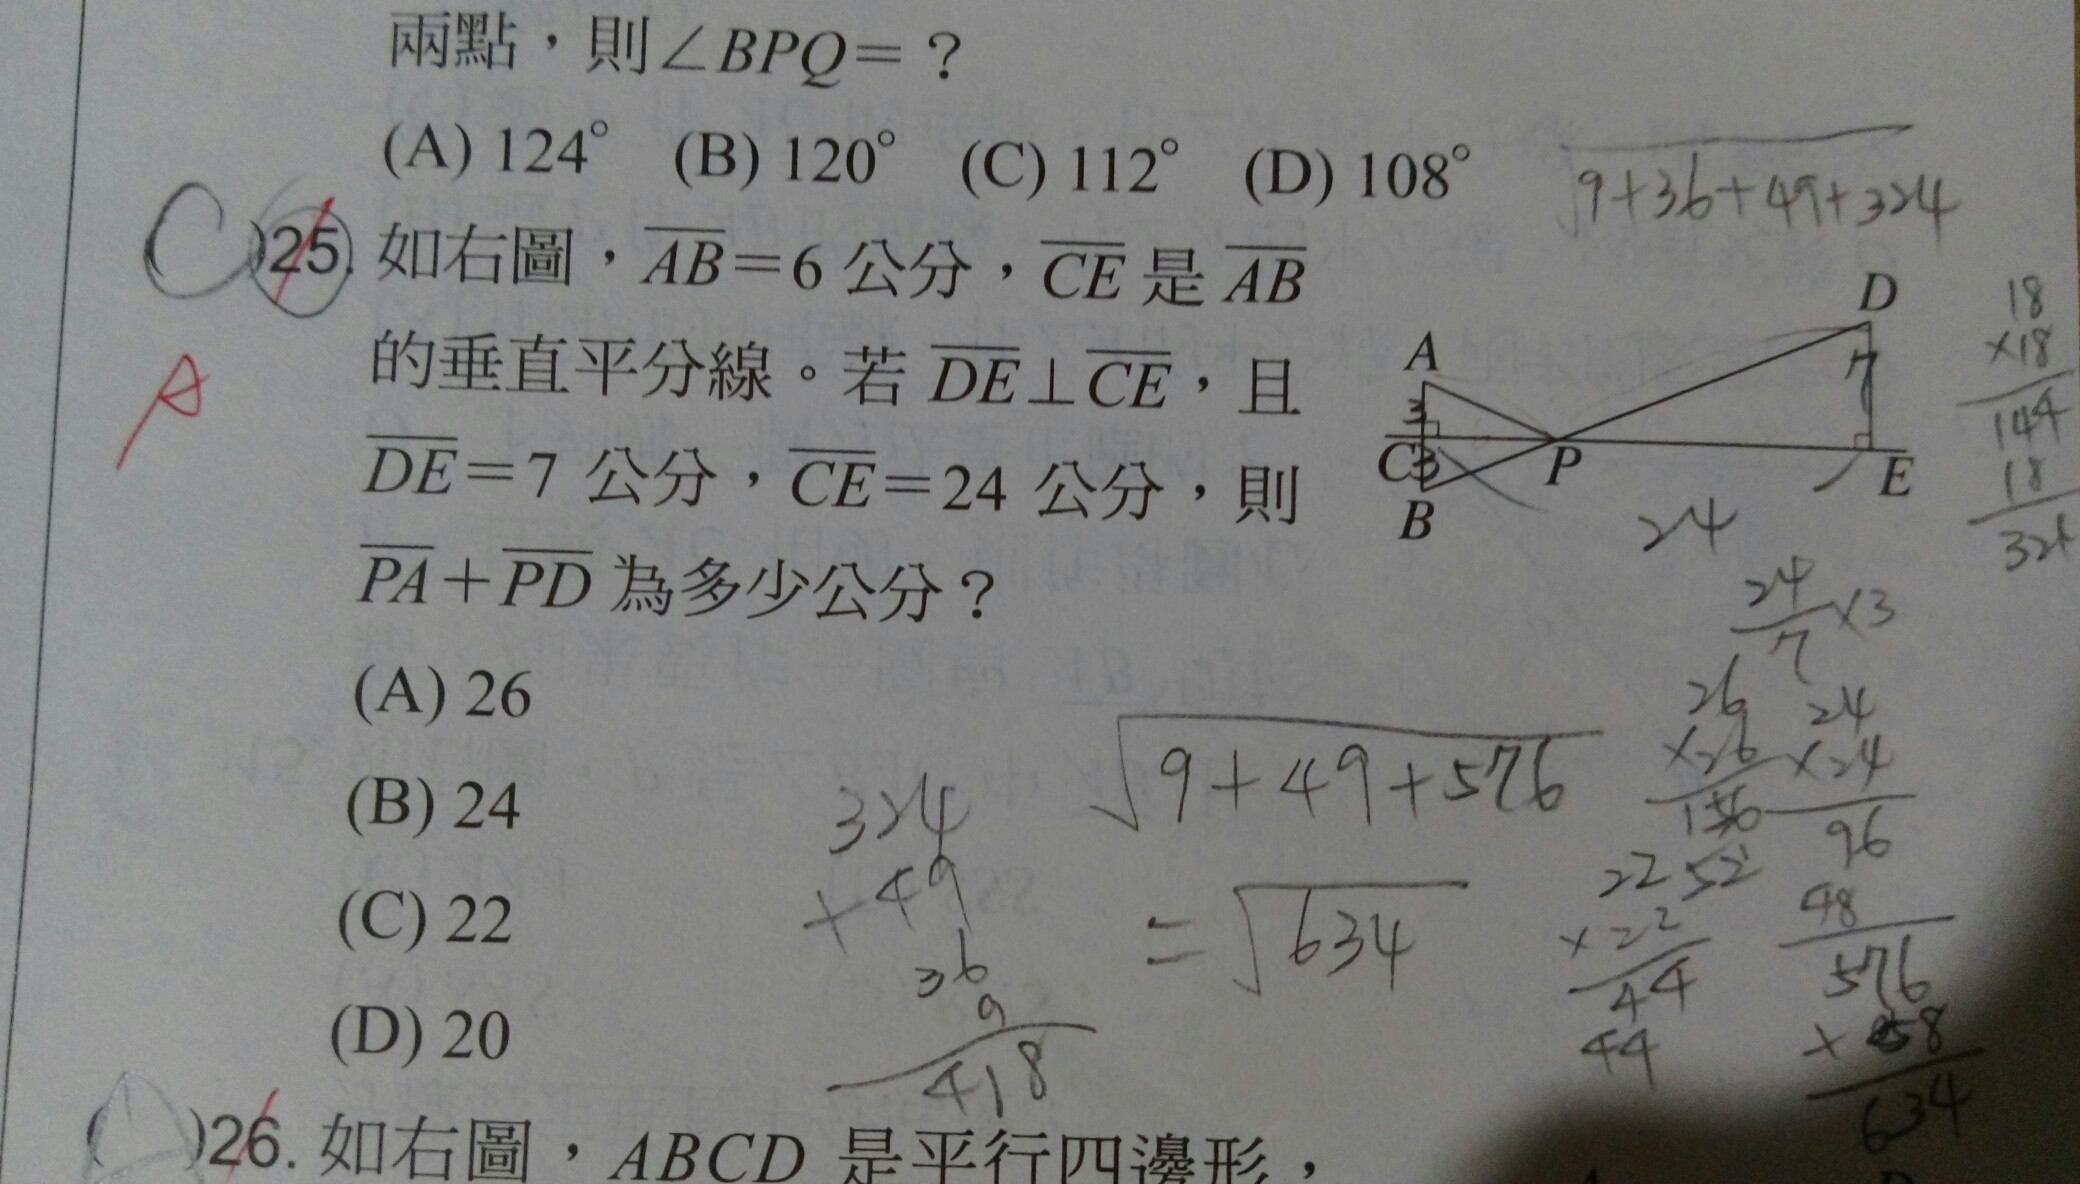 兩點,則∠BPQ=?
(A) 124° (B) 120° (C) 112° (D) 108°
√9+36+49+324
C )25. 如右圖,AB=6 公分,CE 是 AB
的垂直平分線。若 DE⊥CE,且
DE=7 公分,CE=24 公分,則
PA+PD 為多少公分?
(A) 26
(B) 24
(C) 22
(D) 20
A
A
D
7
3
C
3
B
P
E
24
18
×18
144
18
324
24/7×3
26
×26
156
52
24
×24
96
48
576
×58
634
√9+49+576
=√634
324
+49
36
9
418
22
×22
44
44
( )26. 如右圖,ABCD 是平行四邊形,